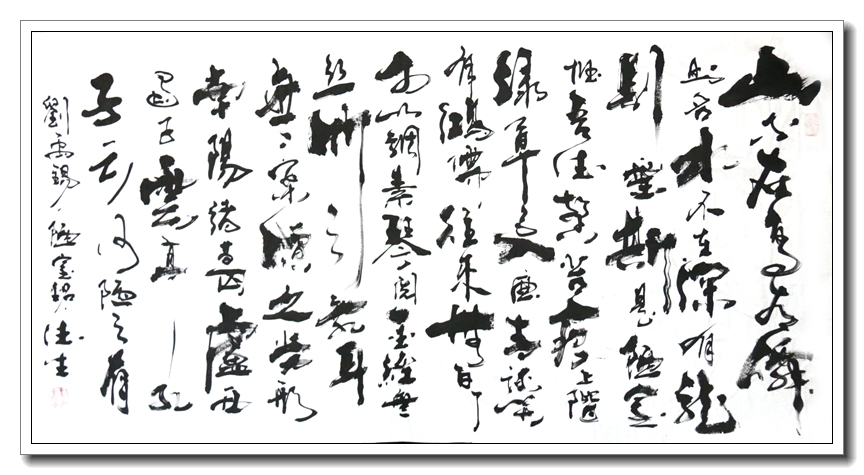 山不在高有僊
則名水不在深有龍
則靈斯是陋室
惟吾德馨苔痕上階
綠草色入簾青談笑
有鴻儒往來無白丁
可以調素琴閱金經無
絲竹之亂耳
無案牘之勞形
南陽諸葛廬西
蜀子雲亭孔
子云何陋之有
劉禹錫陋室銘德生